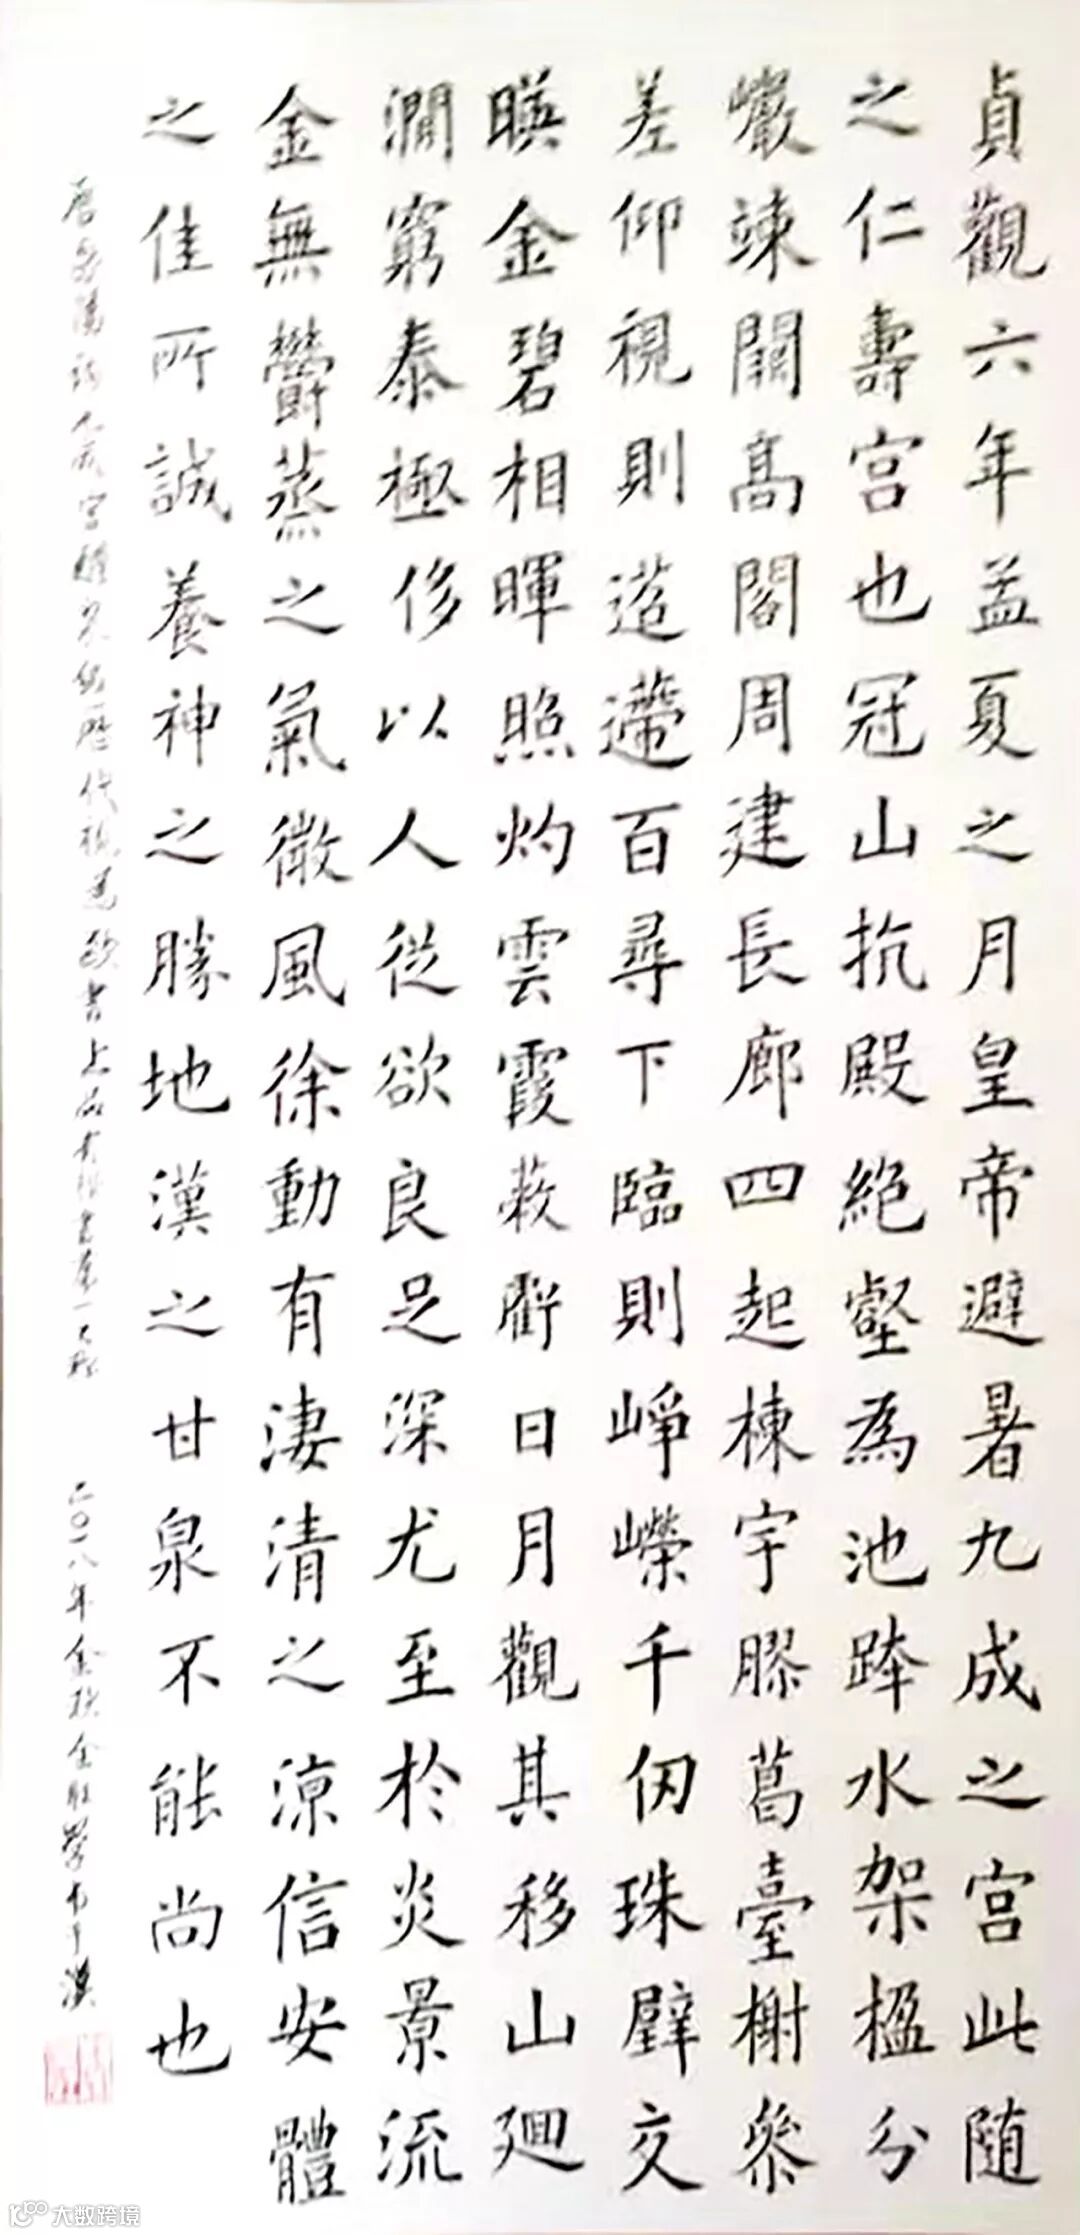 貞觀六年孟夏之月皇帝避暑九成之宮此随
之仁壽宮也冠山抗殿絕壑為池跨水架楹分
巖竦闕高閣周建長廊四起棟宇膠葛臺榭參
差仰視則迢遰百尋下臨則崢嶸千仞珠璧交
暎金碧相暉照灼雲霞蔽虧日月觀其移山廻
澗窮泰極侈以人從欲良足深尤至於炎景流
金無欝蒸之氣微風徐動有淒清之涼信安體
之佳所誠養神之勝地漢之甘泉不能尚也
唐歐陽詢九成宮醴泉銘歷代視為欧書上品 二〇一八年金秋
大数跨境